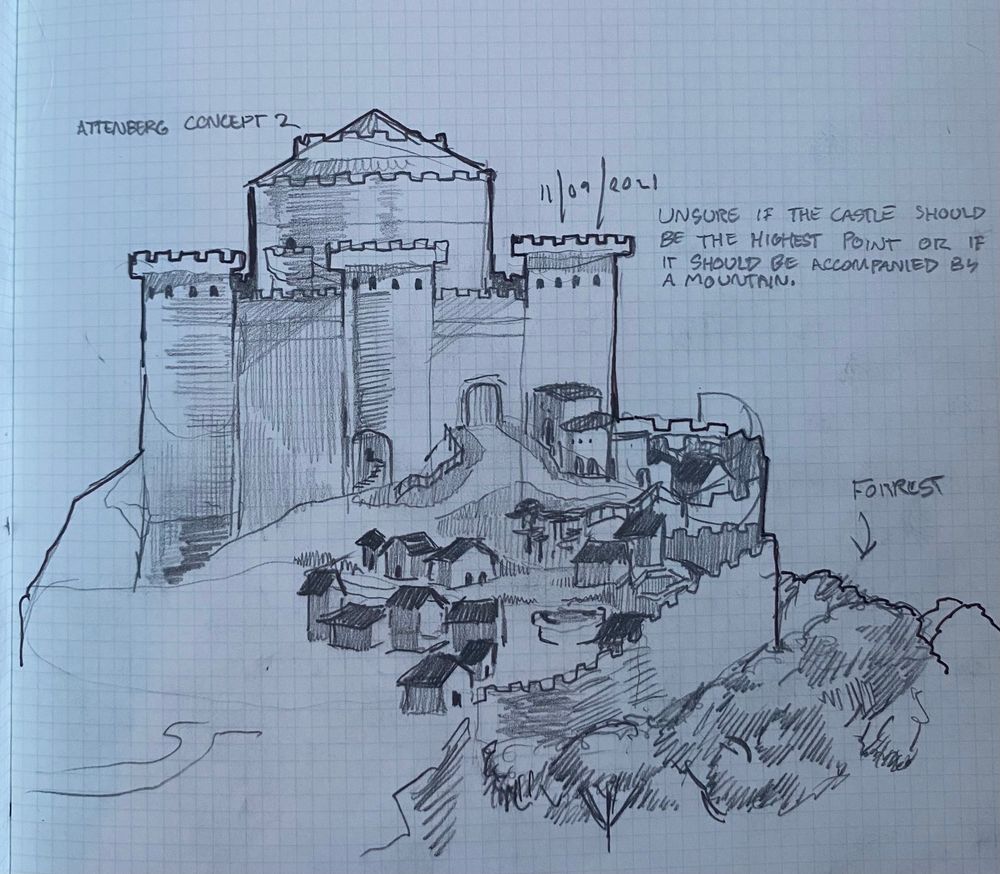 ATTENBERG CONCEPT 2
11/09/2021
UNSURE IF THE CASTLE SHOULD
BE THE HIGHEST POINT OR IF
IT SHOULD BE ACCOMPANIED BY
A MOUNTAIN.